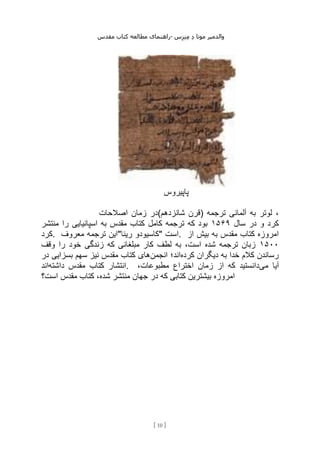 والدمیر مونا د میرس -راهنمای مطالعه کتاب مقدس
پاپیروس
، لوتر به آلمانی ترجمه (قرن شانزدهم)در زمان اصلاحات
کرد و در سال ۱۵۶۹ بود که ترجمه کامل کتاب مقدس به اسپانیایی را منتشر
امروزه کتاب مقدس به بیش از .است "کاسیودو رینا"این ترجمه معروف .کرد
۱۵۰۰ زبان ترجمه شده است، به لطف کار مبلغانی که زندگی خود را وقف
رساندن کلام خدا به دیگران کرده‌اند؛ انجمن‌های کتاب مقدس نیز سهم بسزایی در
آیا می‌دانستید که از زمان اختراع مطبوعات، .انتشار کتاب مقدس داشته‌اند
امروزه بیشترین کتابی که در جهان منتشر شده، کتاب مقدس است؟
[ 10 ]